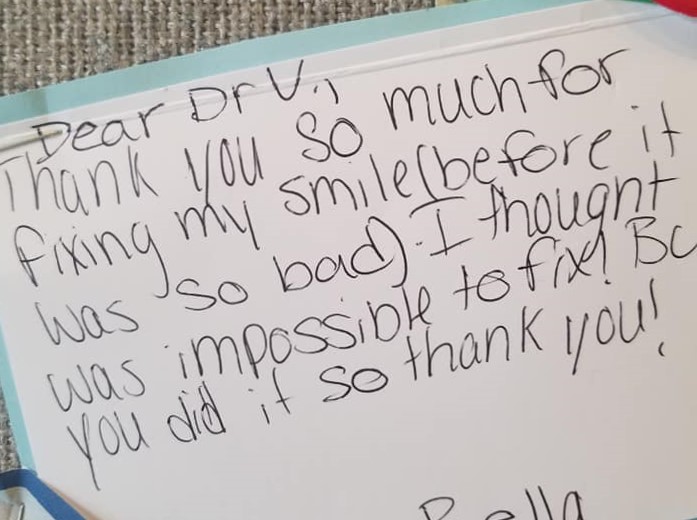 Dear Dr V.,
Thank you so much for
fixing my smile(before it
was so bad). I thought
was impossible to fix!
you did it so thank you!
Bella